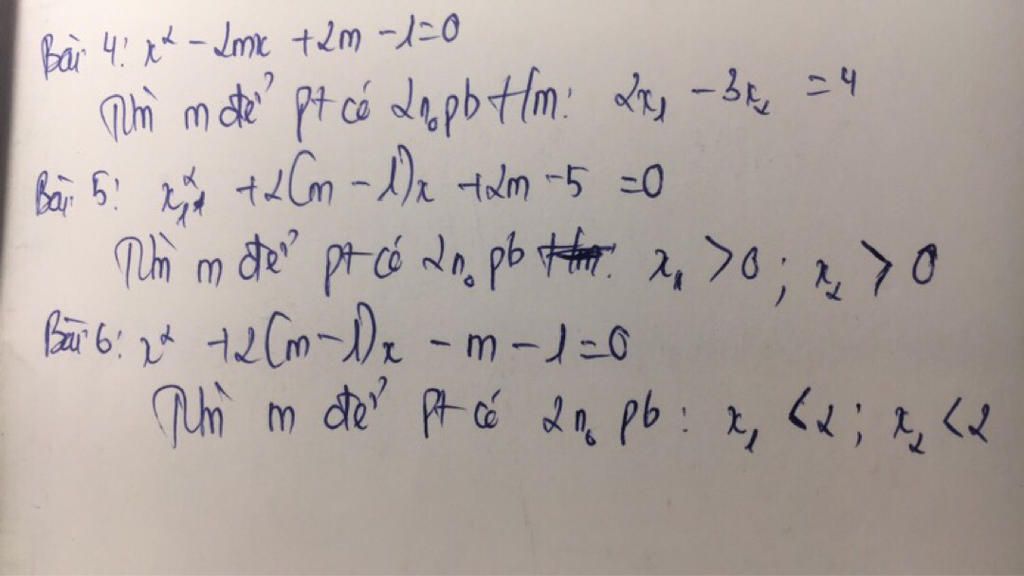 Bài 4: x² - 2mx + 2m - 1 = 0
Tìm m để pt có 2n₀ pb t/m: 2x₁ - 3x₂ = 4
Bài 5: x² + 2(m - 1)x + 2m - 5 = 0
Tìm m để pt có 2n₀ pb x₁ > 0 ; x₂ > 0
Bài 6: x² + 2(m - 1)x - m - 1 = 0
Tìm m để pt có 2n₀ pb : x₁ < 2 ; x₂ < 2